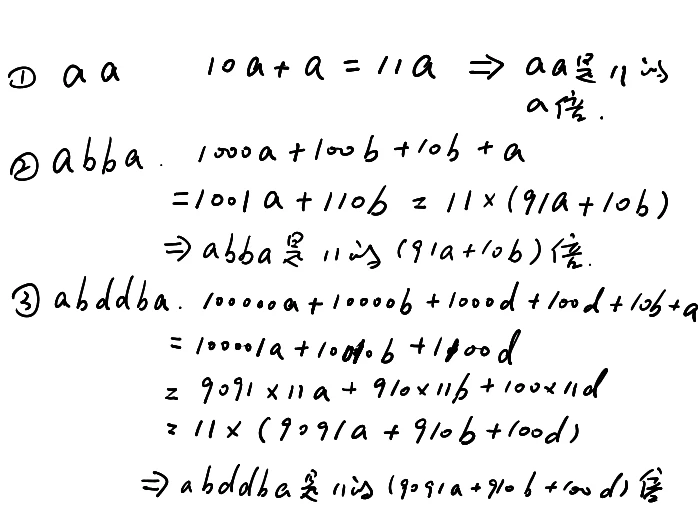 ① aa 10a+a=11a ⇒ aa是11的
a倍.
② abba. 1000a+100b+10b+a
=1001a+110b=11×(91a+10b)
⇒abba是11的(91a+10b)倍.
③ abddba. 100000a+10000b+1000d+100d+10b+a
=100001a+10010b+1100d
=9091×11a+910×11b+100×11d
=11×(9091a+910b+100d)
⇒abddba是11的(9091a+910b+100d)倍